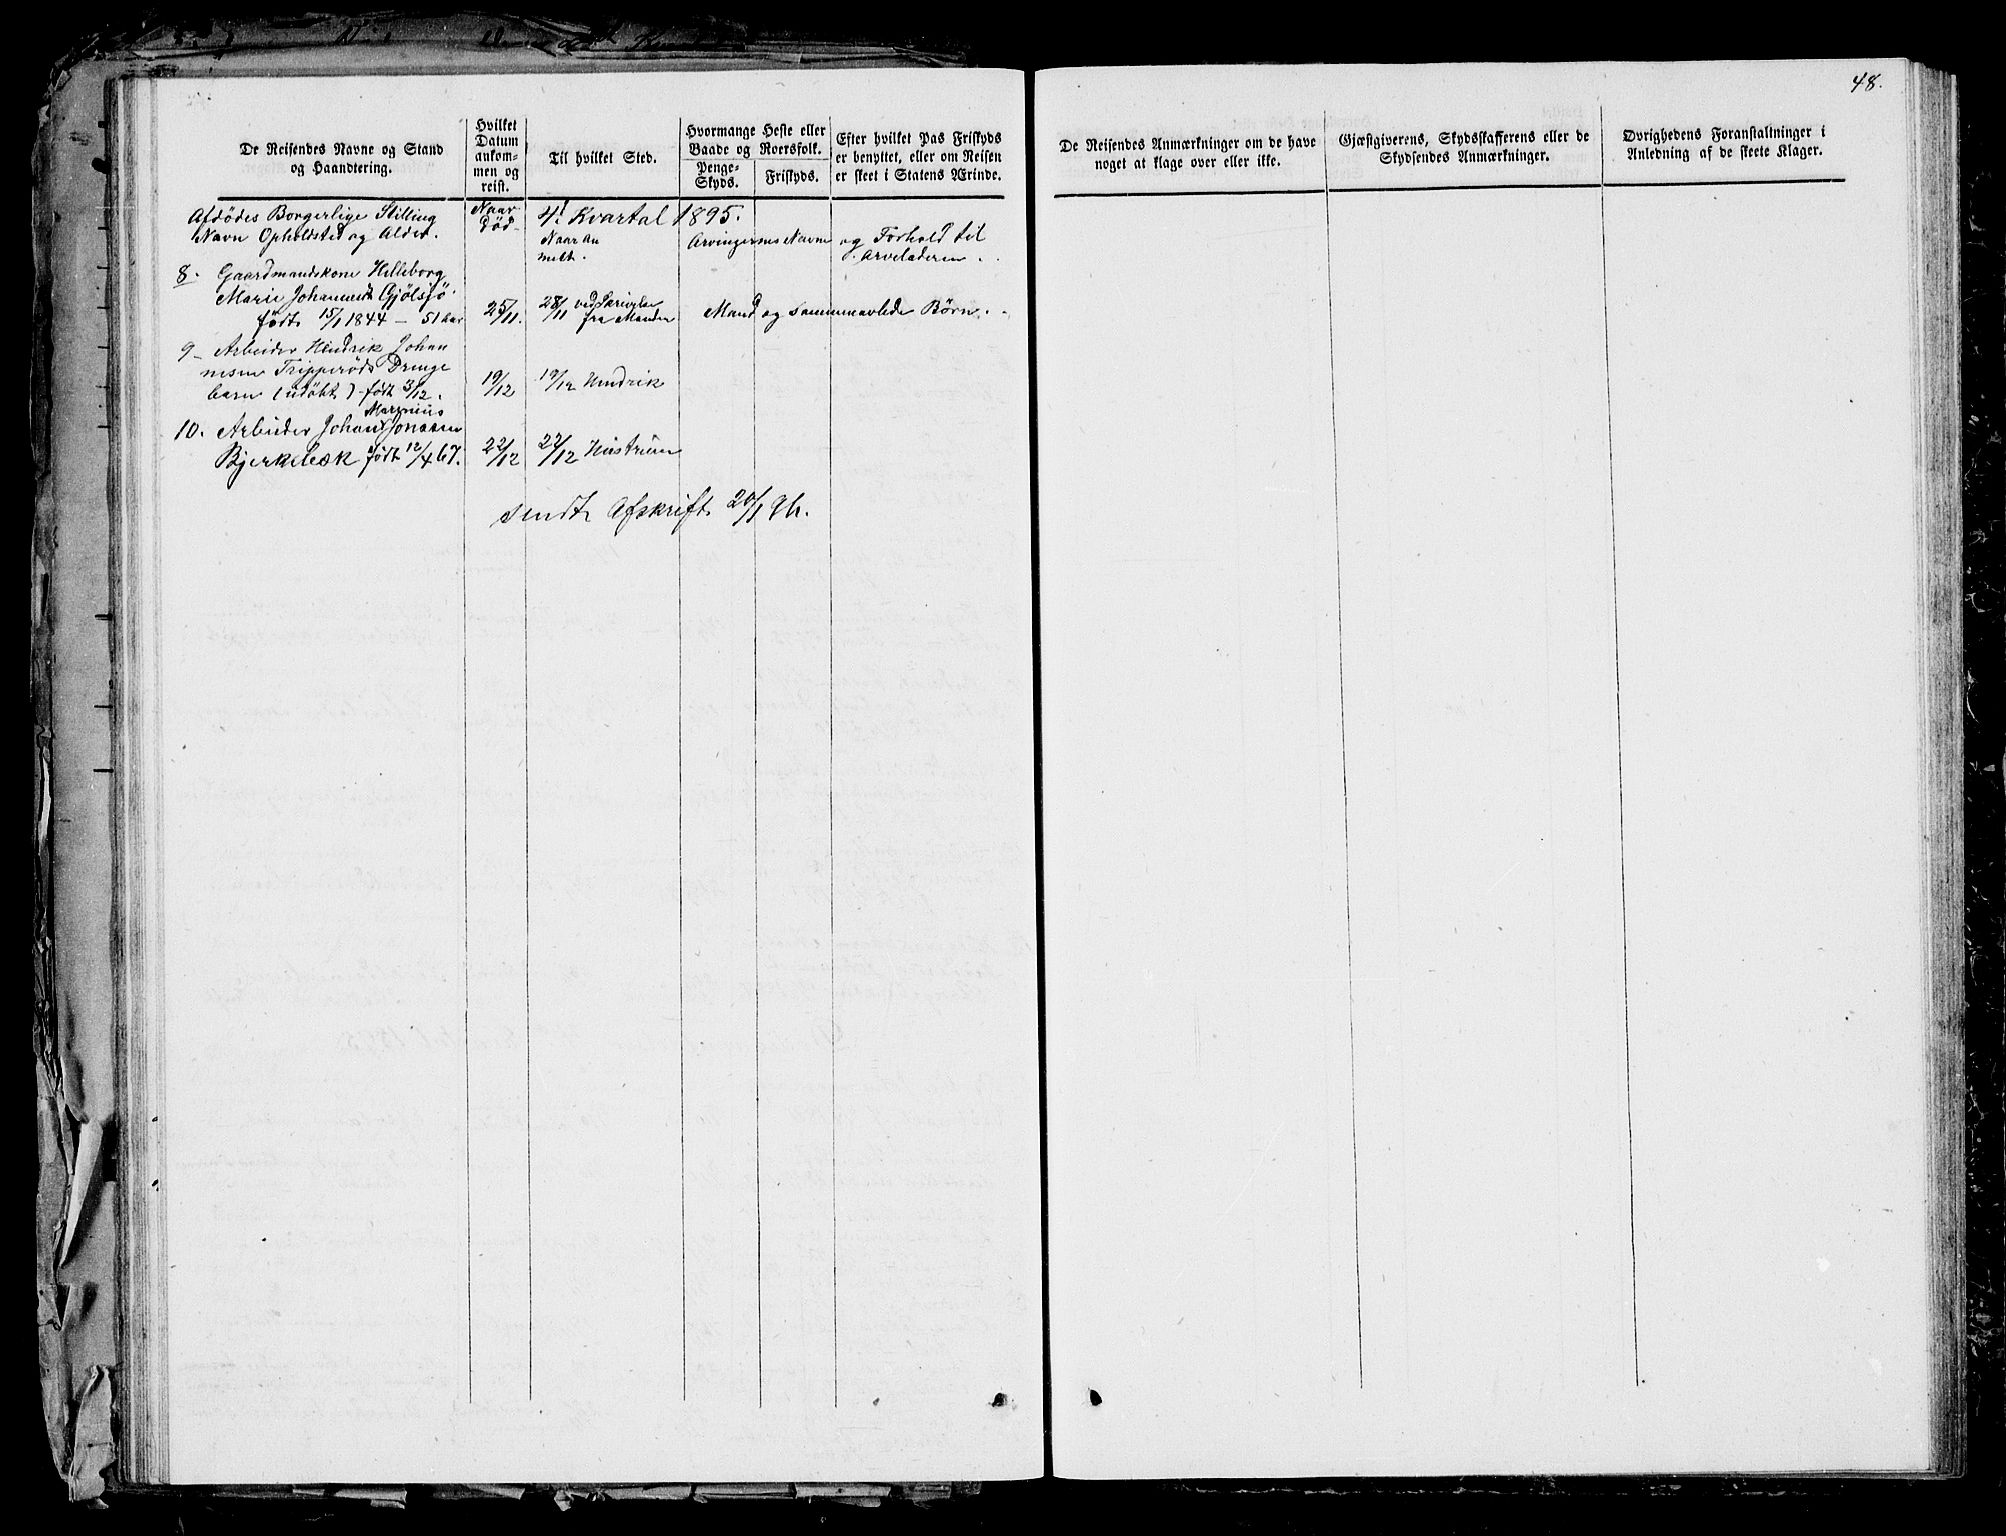 48.
De Reisendes Navne og Stand
og Haandtering.
Hvilket
Datum
ankom-
men og
reist.
Til hvilket Sted.
Hvormange Heste eller
Baade og Roersfolk.
Penge-
Skyds.
Friskyds.
Efter hvilket Pas Friskyds
er benyttet, eller om Reisen
er skeet i Statens Ærinde.
De Reisendes Anmærkninger om de have
noget at klage over eller ikke.
Gjæstgiverens, Skydsskafferens eller de
Skydsendes Anmærkninger.
Øvrighedens Foranstaltninger i
Anledning af de skeete Klager.
Afdödes Borgerlige Stilling
Navn Opholdsted og Alder.
Naar
död
4. Kvartal 1895.
Naar An
meldt.
Arvingernes Navne og Forhold til
Arveladeren.
8. Gaardmandskone Helleborg
Marie Johannesdt Gjölsjö
födt 15/1 1844 - 51 aar
25/11.
28/11 ved Skrivelse
fra Manden
Mand og sammenavlede Börn.
9 - Arbeider Hendrik Johan
nesen Tripperöds Drenge
barn (udöbt) födt 3/12.
19/12
19/12 Hendrik
Marenius
10. Arbeider Johan Jonasen
Bjerkebæk födt 12/4 67.
22/12
27/12 Hustruen
sendt Afskrift 20/1 96.